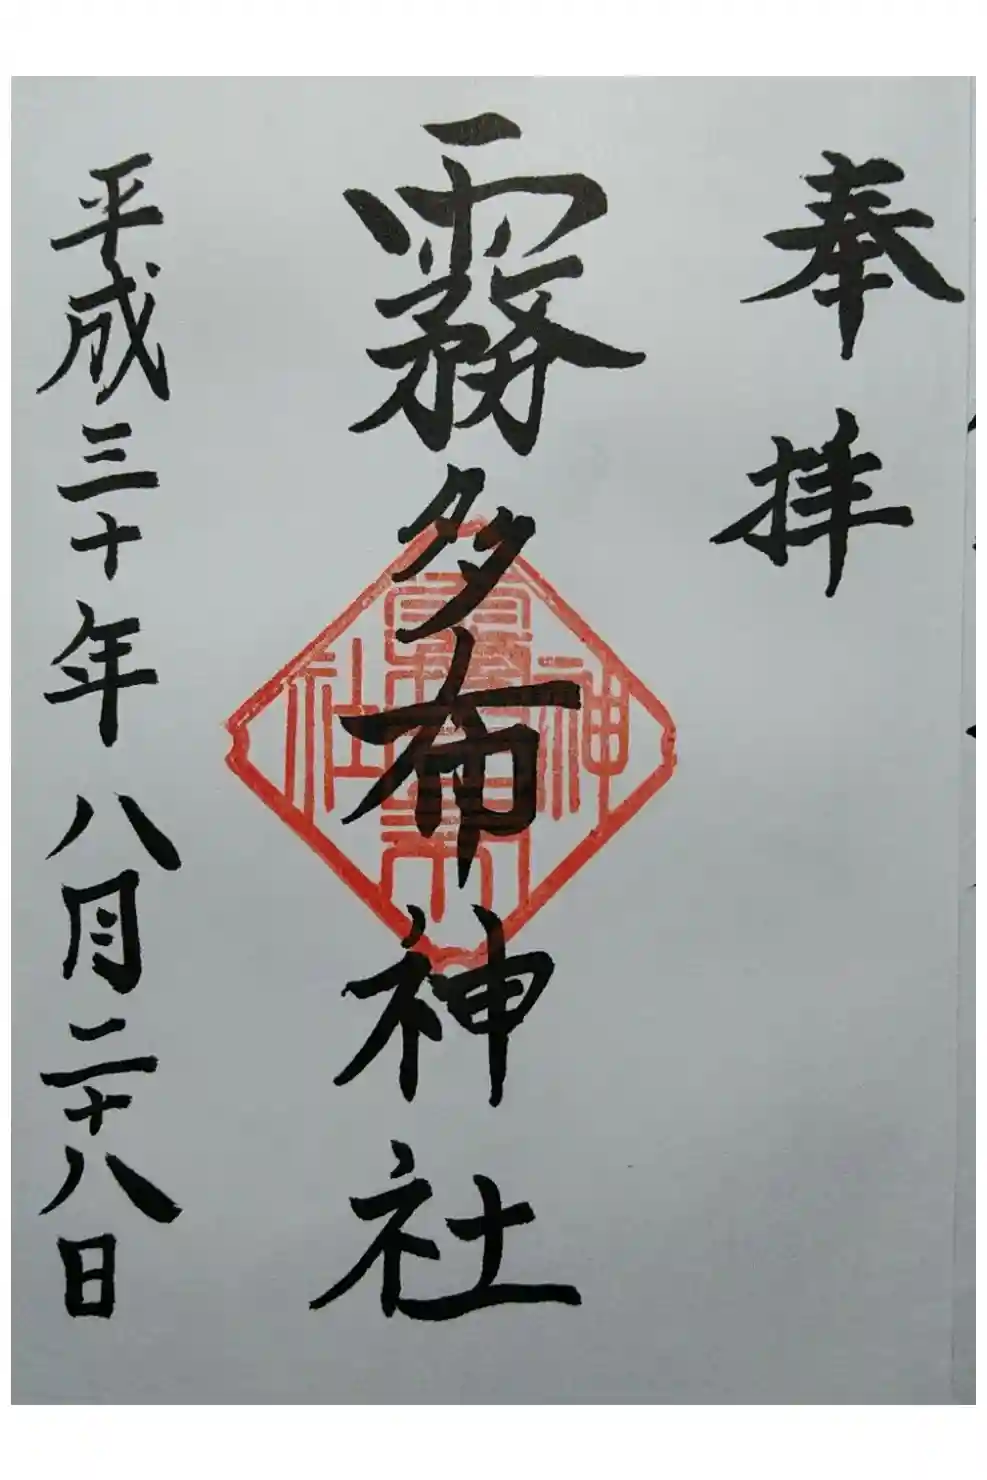 奉拝
霧多布神社
平成三十年八月二十八日
神
社